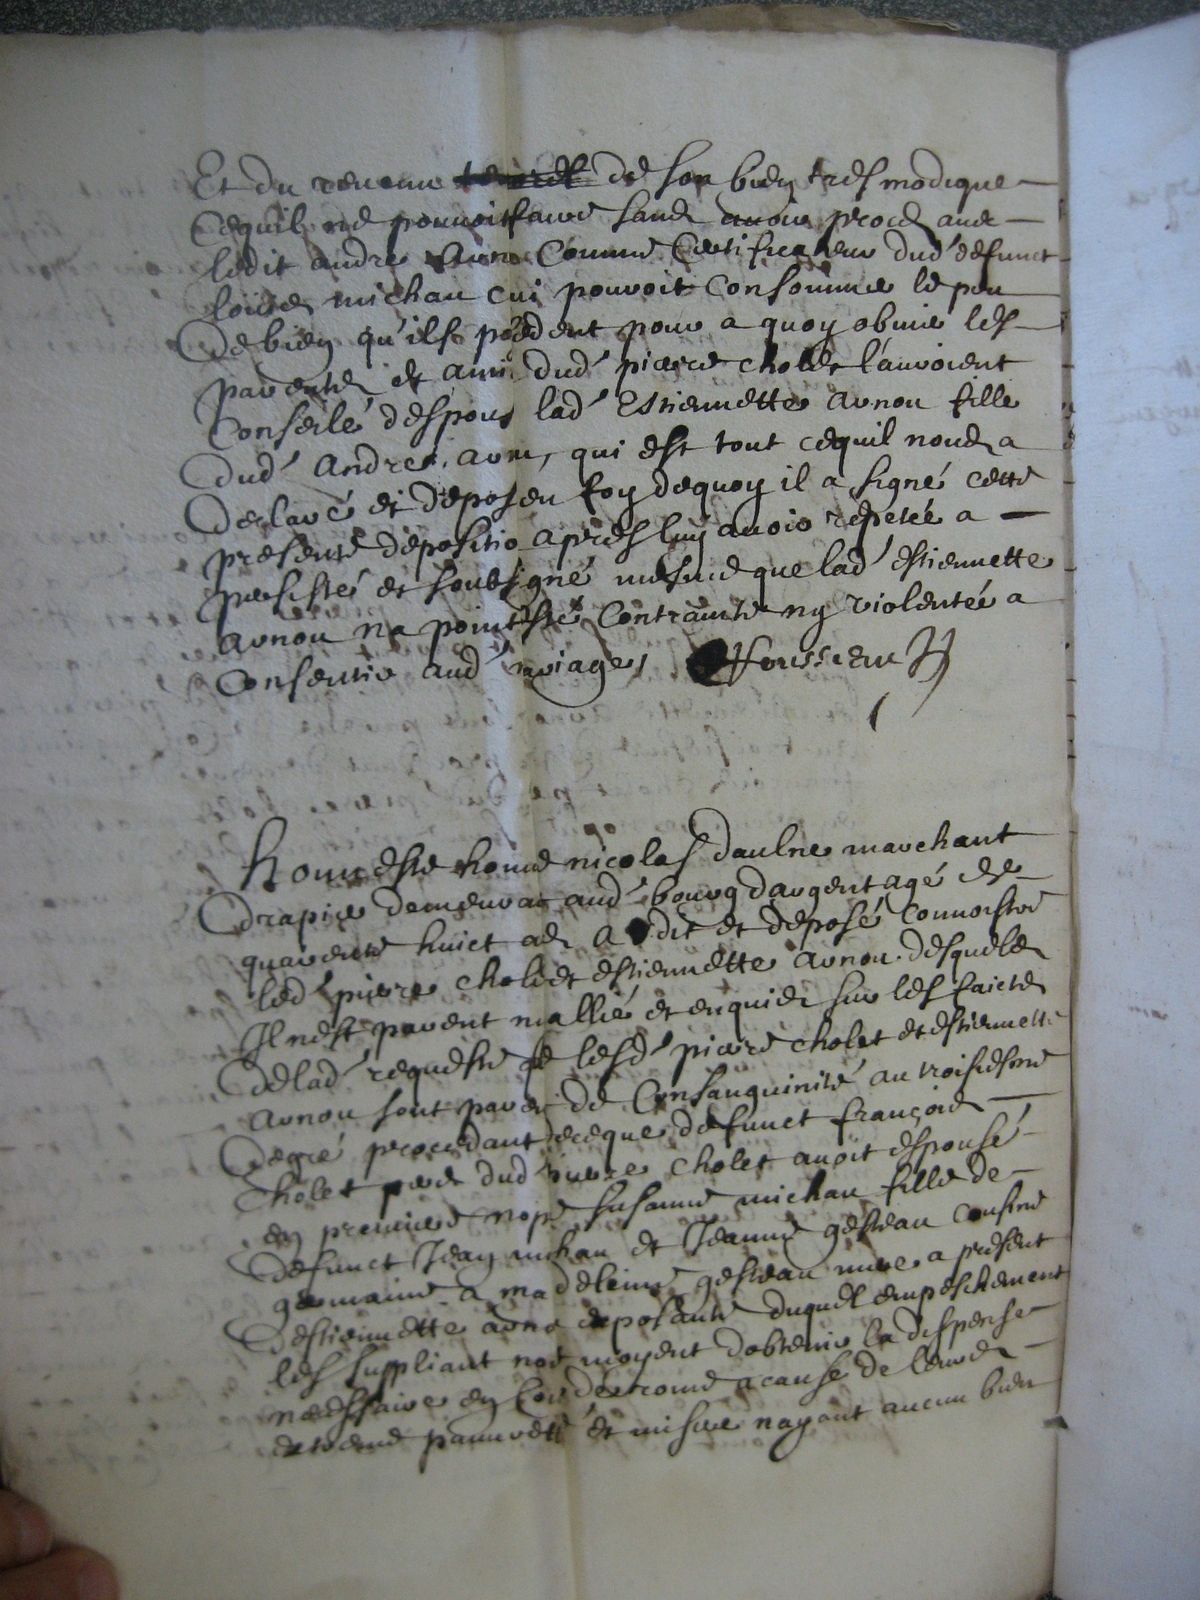 Et du revenu de son bien tres modique
Cequil ne pouvoit faire sans avoir proces avec
ledit andre Arnou Comme Certificateur dud defunct
louis michau cui pouvoit Consommer le peu
de bien qu'ils possedent pour a quoy obvier les
parents et amis dud pierre cholet l'auroient
Conseilé d'espouser lad Estiennette Arnou fille
dud Andre Arnou, qui est tout cequil nous a
declaré et deposé en foy dequoy il a signé cette
presente depositio apres luy avoir repetée a
persisté et soubsigné mesme que lad estiennette
arnou na point esté Contrainte ny violentée a
Consentir aud mariage, Housseau
honneste home nicolas daulne marchant
drapier demeurat aud bourg dargent agé de
quarente huict ans A dit et deposé connoistre
led pierre cholet et estiennette arnou desquels
Il nest parent nallié et enquis sur les faicts
de lad requeste lesd pierre cholet et estiennette
arnou sont parens de Consanguinité au troisiesme
degré procedant de ceque defunct françois
cholet pere dud pierre cholet avoit espousé
en premiere nopce susanne michau fille de
defunct Jean michau et Jeanne gesteau cousine
germaine a madeleine gesteau mere a present
destiennette arnou exposante duquel empeschement
les suppliant not moyent dobtenir la dispense
necessaire en Cour de rome a cause de leurs
extreme pauvreté et misere nayant aucun bien